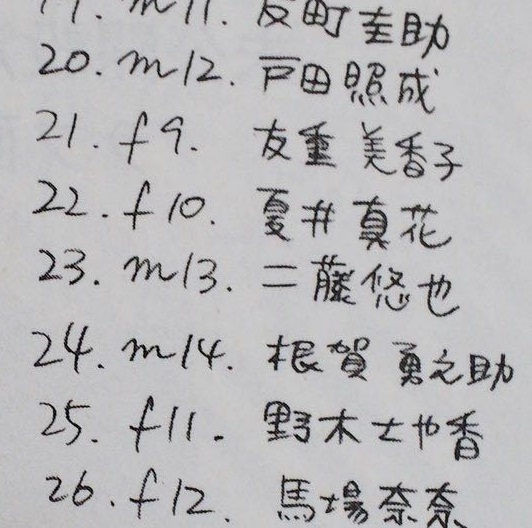 m11. 反町圭助
20. m12. 戸田照成
21. f9. 友重美香子
22. f10. 夏井真花
23. m13. 二藤悠也
24. m14. 根賀勇之助
25. f11. 野木士也香
26. f12. 馬場奈奈